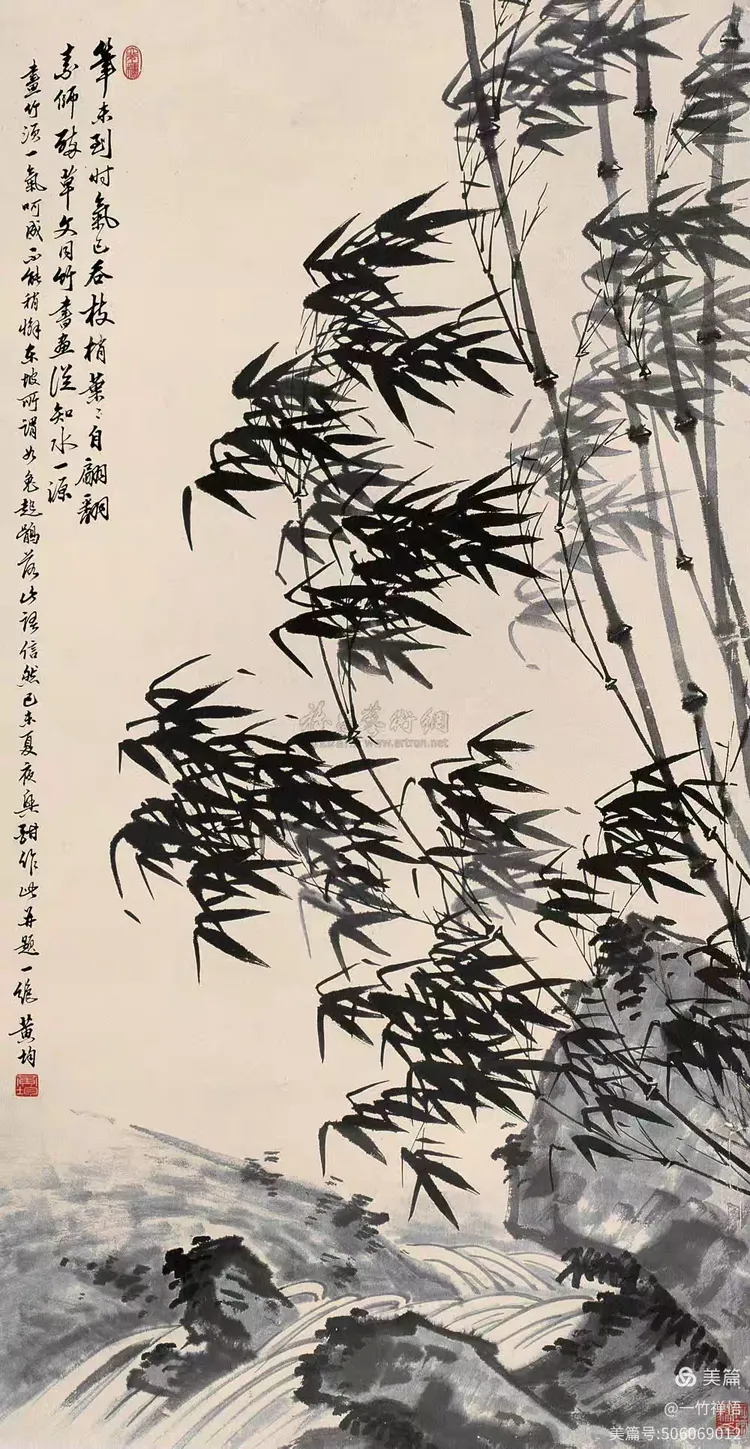 筆未到时氣已吞枝梢葉〻自翩翻
素师醉草文同竹書画從知水一源
畫竹须一氣呵成不能稍懈东坡所谓如兔起鹘落此语信然己未夏夜興酣作此并题一绝 黄均
雅昌藝術網
www.artron.net
美篇
@一竹禅悟
美篇号:506069012